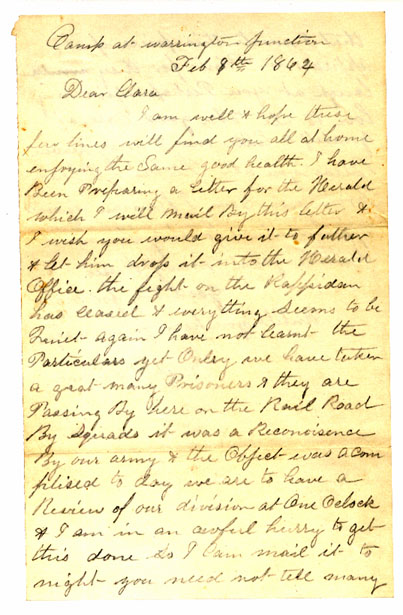 Camp at warrington junction
Feb 8th 1864
Dear Clara
I am well & hope these
few lines will find you all at home
enjoying the Same good health. I have
Been Preparing a letter for the Herald
which I will mail By this letter &
I wish you would give it to father
& let him drop it into the Herald
Office. the fight on the Rappidan
has ceased & everything seems to be
Quiet again I have not learnt the
Particulars yet Only we have taken
a great many Prisoners & they are
Passing By here on the Rail Road
By squads it was a Reconoisence
By our army & the Object was acom
plised to day we are to have a
Review of our division at One Oclock
& I am in an awful hurry to get
this done so I can mail it to
night you need not tell many